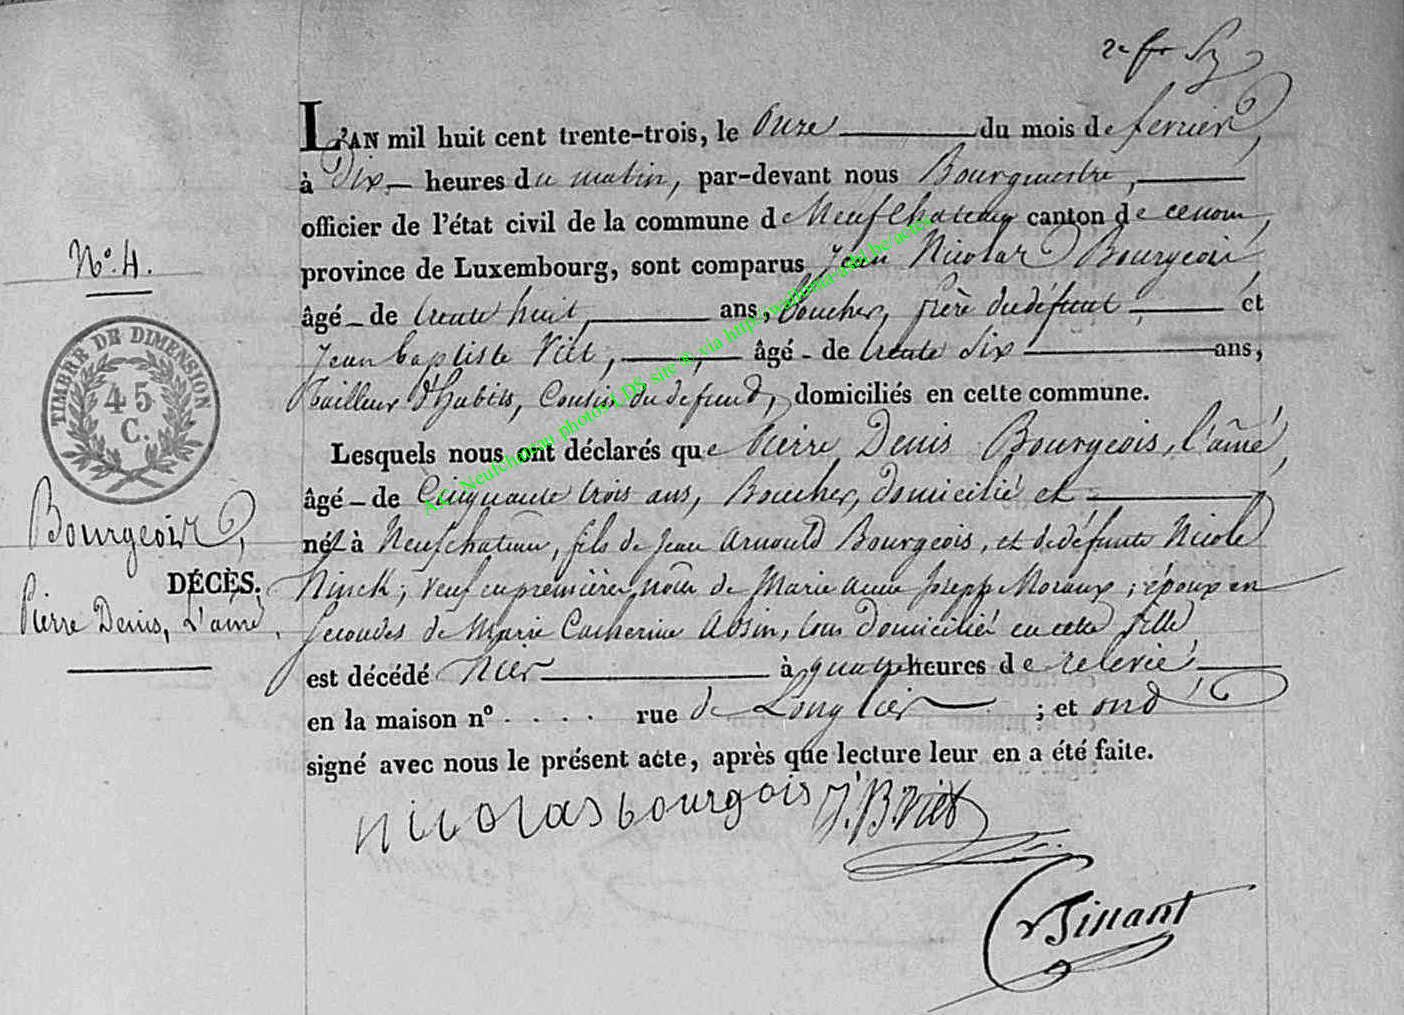 2e fr
L'AN mil huit cent trente-trois, le Onze du mois de fevrier,
à Dix heures du matin, par-devant nous Bourgmestre,
officier de l'état civil de la commune de Neufchateau canton de ce nom,
N.o 4.
province de Luxembourg, sont comparus Jean Nicolas Bourgeois,
âgé de trente huit, ans, boucher, frère du défunt, et
Jean baptiste Viet, âgé de trente Six ans,
TIMBRE DE DIMENSION
45 C.
Tailleur d'habits, Cousin du defunt, domiciliés en cette commune.
Lesquels nous ont déclarés que Pierre Denis Bourgeois, l'aîné,
âgé de Cinquante trois ans, Boucher, domicilié et
Bourgeois,
né à Neufchateau, fils de Jean Arnould Bourgeois, et de défunte Nicole
DÉCÈS.
Ninck; veuf en premières noces de Marie anne Joseph Moraux; époux en
Pierre Denis, L'ainé.
Secondes de Marie Catherine, tous domiciliés en cette ville,
est décédé hier à quatre heures de relevée,
en la maison no .... rue de Longlier; et ont
signé avec nous le présent acte, après que lecture leur en a été faite.
Nicolas bourgois J. B. Viet
Tinant
A.C. Neufchateau photos LDS site © via http://wallonia-asbl.be/actes